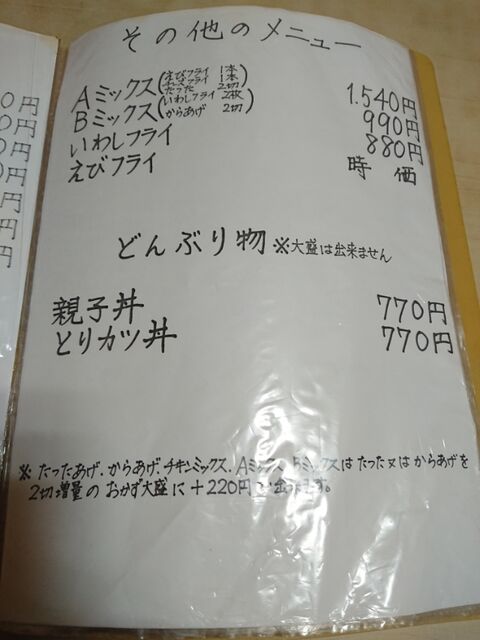 その他のメニュー
Aミックス(えびフライ 1本
フライ 1本
たった 2切) 1.540円
Bミックス(いわしフライ 2枚
からあげ 2切) 990円
いわしフライ 880円
えびフライ 時価
どんぶり物 ※大盛は出来ません
親子丼 770円
とりカツ丼 770円
※たったあげ.からあげ.チキンミックス.Aミックス Bミックスはたった又はからあげを
2切増量のおかず大盛に+220円で出来ます。
0円
0円
0円
0円
円
円
円